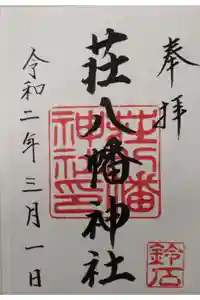 奉拝
荘八幡神社
令和二年三月一日
荘八幡
神社印
鈴石